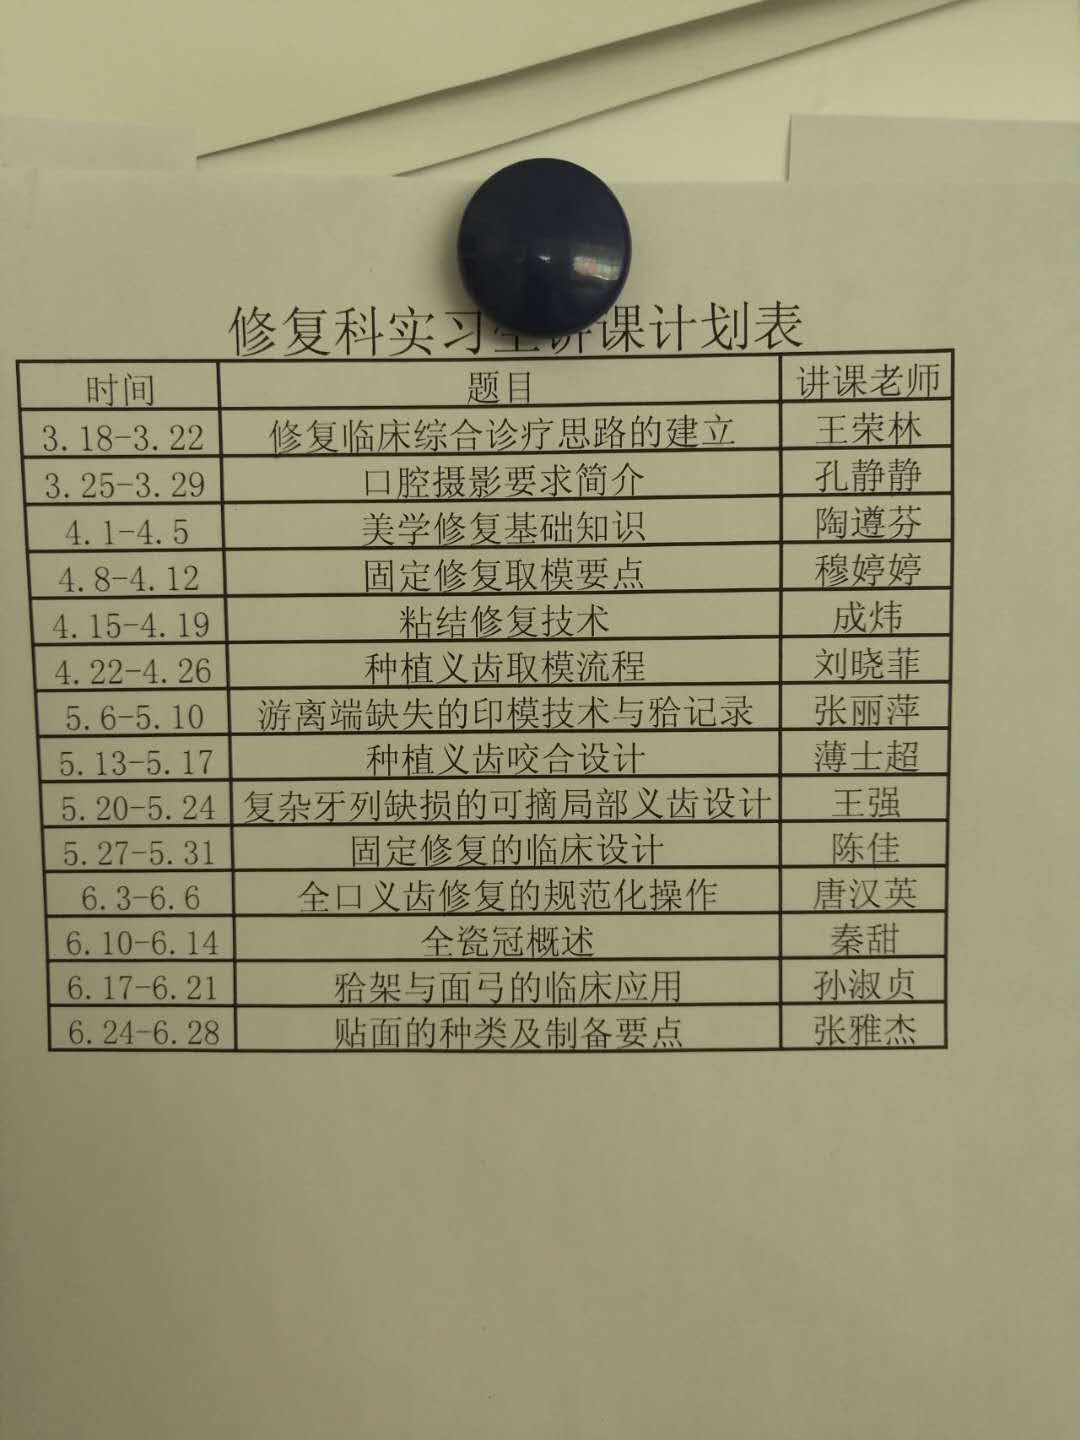 修复科实习生讲课计划表
时间 题目 讲课老师
3.18-3.22 修复临床综合诊疗思路的建立 王荣林
3.25-3.29 口腔摄影要求简介 孔静静
4.1-4.5 美学修复基础知识 陶遵芬
4.8-4.12 固定修复取模要点 穆婷婷
4.15-4.19 粘结修复技术 成炜
4.22-4.26 种植义齿取模流程 刘晓菲
5.6-5.10 游离端缺失的印模技术与𬌗记录 张丽萍
5.13-5.17 种植义齿咬合设计 薄士超
5.20-5.24 复杂牙列缺损的可摘局部义齿设计 王强
5.27-5.31 固定修复的临床设计 陈佳
6.3-6.6 全口义齿修复的规范化操作 唐汉英
6.10-6.14 全瓷冠概述 秦甜
6.17-6.21 𬌗架与面弓的临床应用 孙淑贞
6.24-6.28 贴面的种类及制备要点 张雅杰